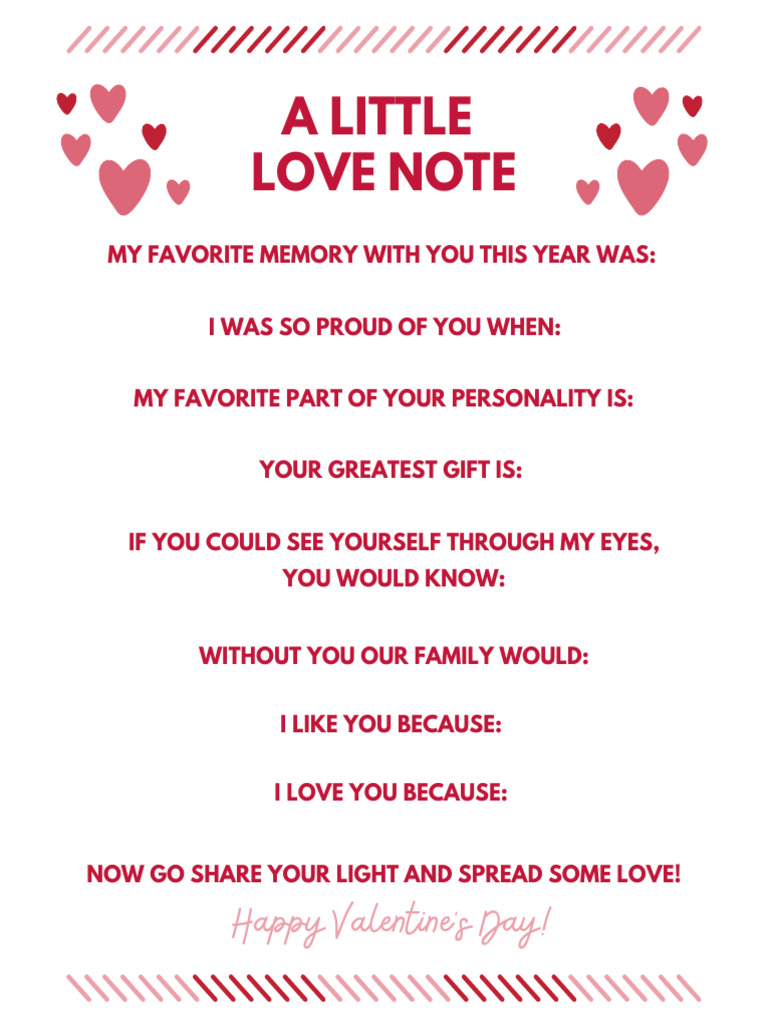 A LITTLE
LOVE NOTE
MY FAVORITE MEMORY WITH YOU THIS YEAR WAS:
I WAS SO PROUD OF YOU WHEN:
MY FAVORITE PART OF YOUR PERSONALITY IS:
YOUR GREATEST GIFT IS:
IF YOU COULD SEE YOURSELF THROUGH MY EYES,
YOU WOULD KNOW:
WITHOUT YOU OUR FAMILY WOULD:
I LIKE YOU BECAUSE:
I LOVE YOU BECAUSE:
NOW GO SHARE YOUR LIGHT AND SPREAD SOME LOVE!
Happy Valentine's Day!